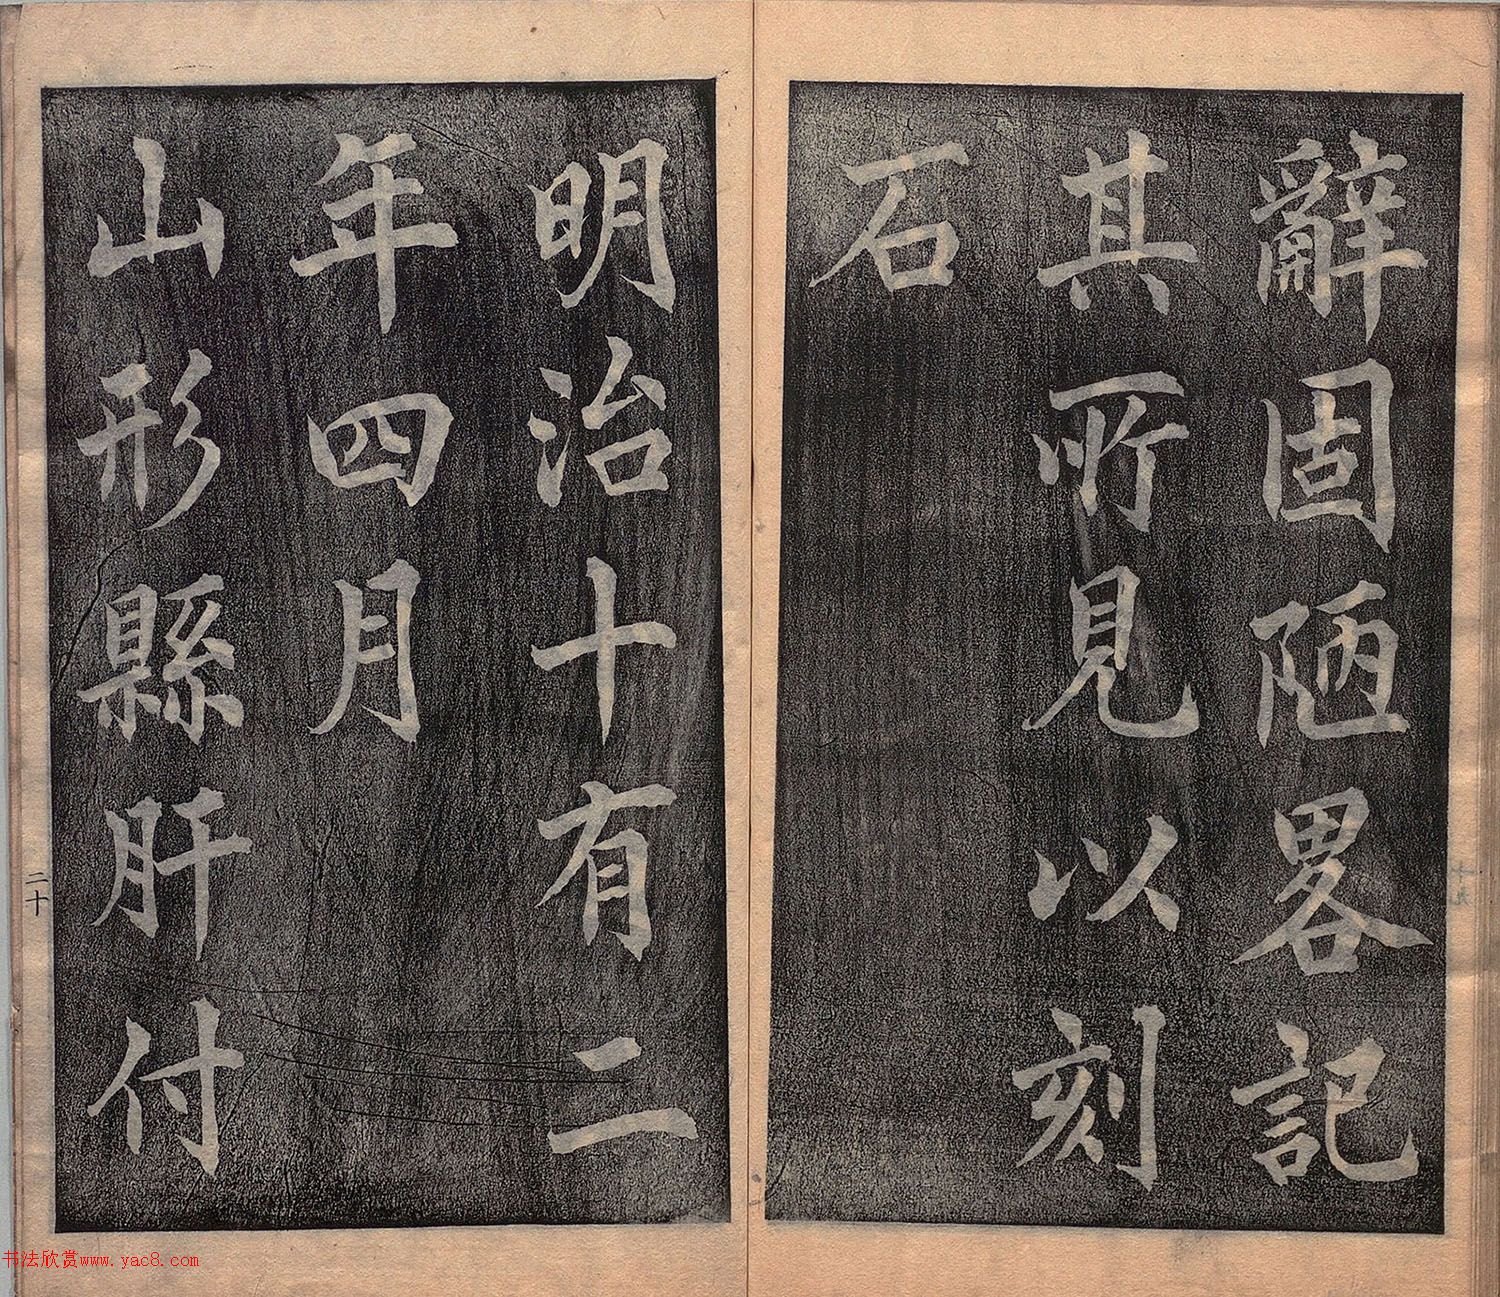 辭固陋畧記
其所見以刻
石
明治十有二
年四月
山形縣肝付
二十
十九
书法欣赏www.yac8.com